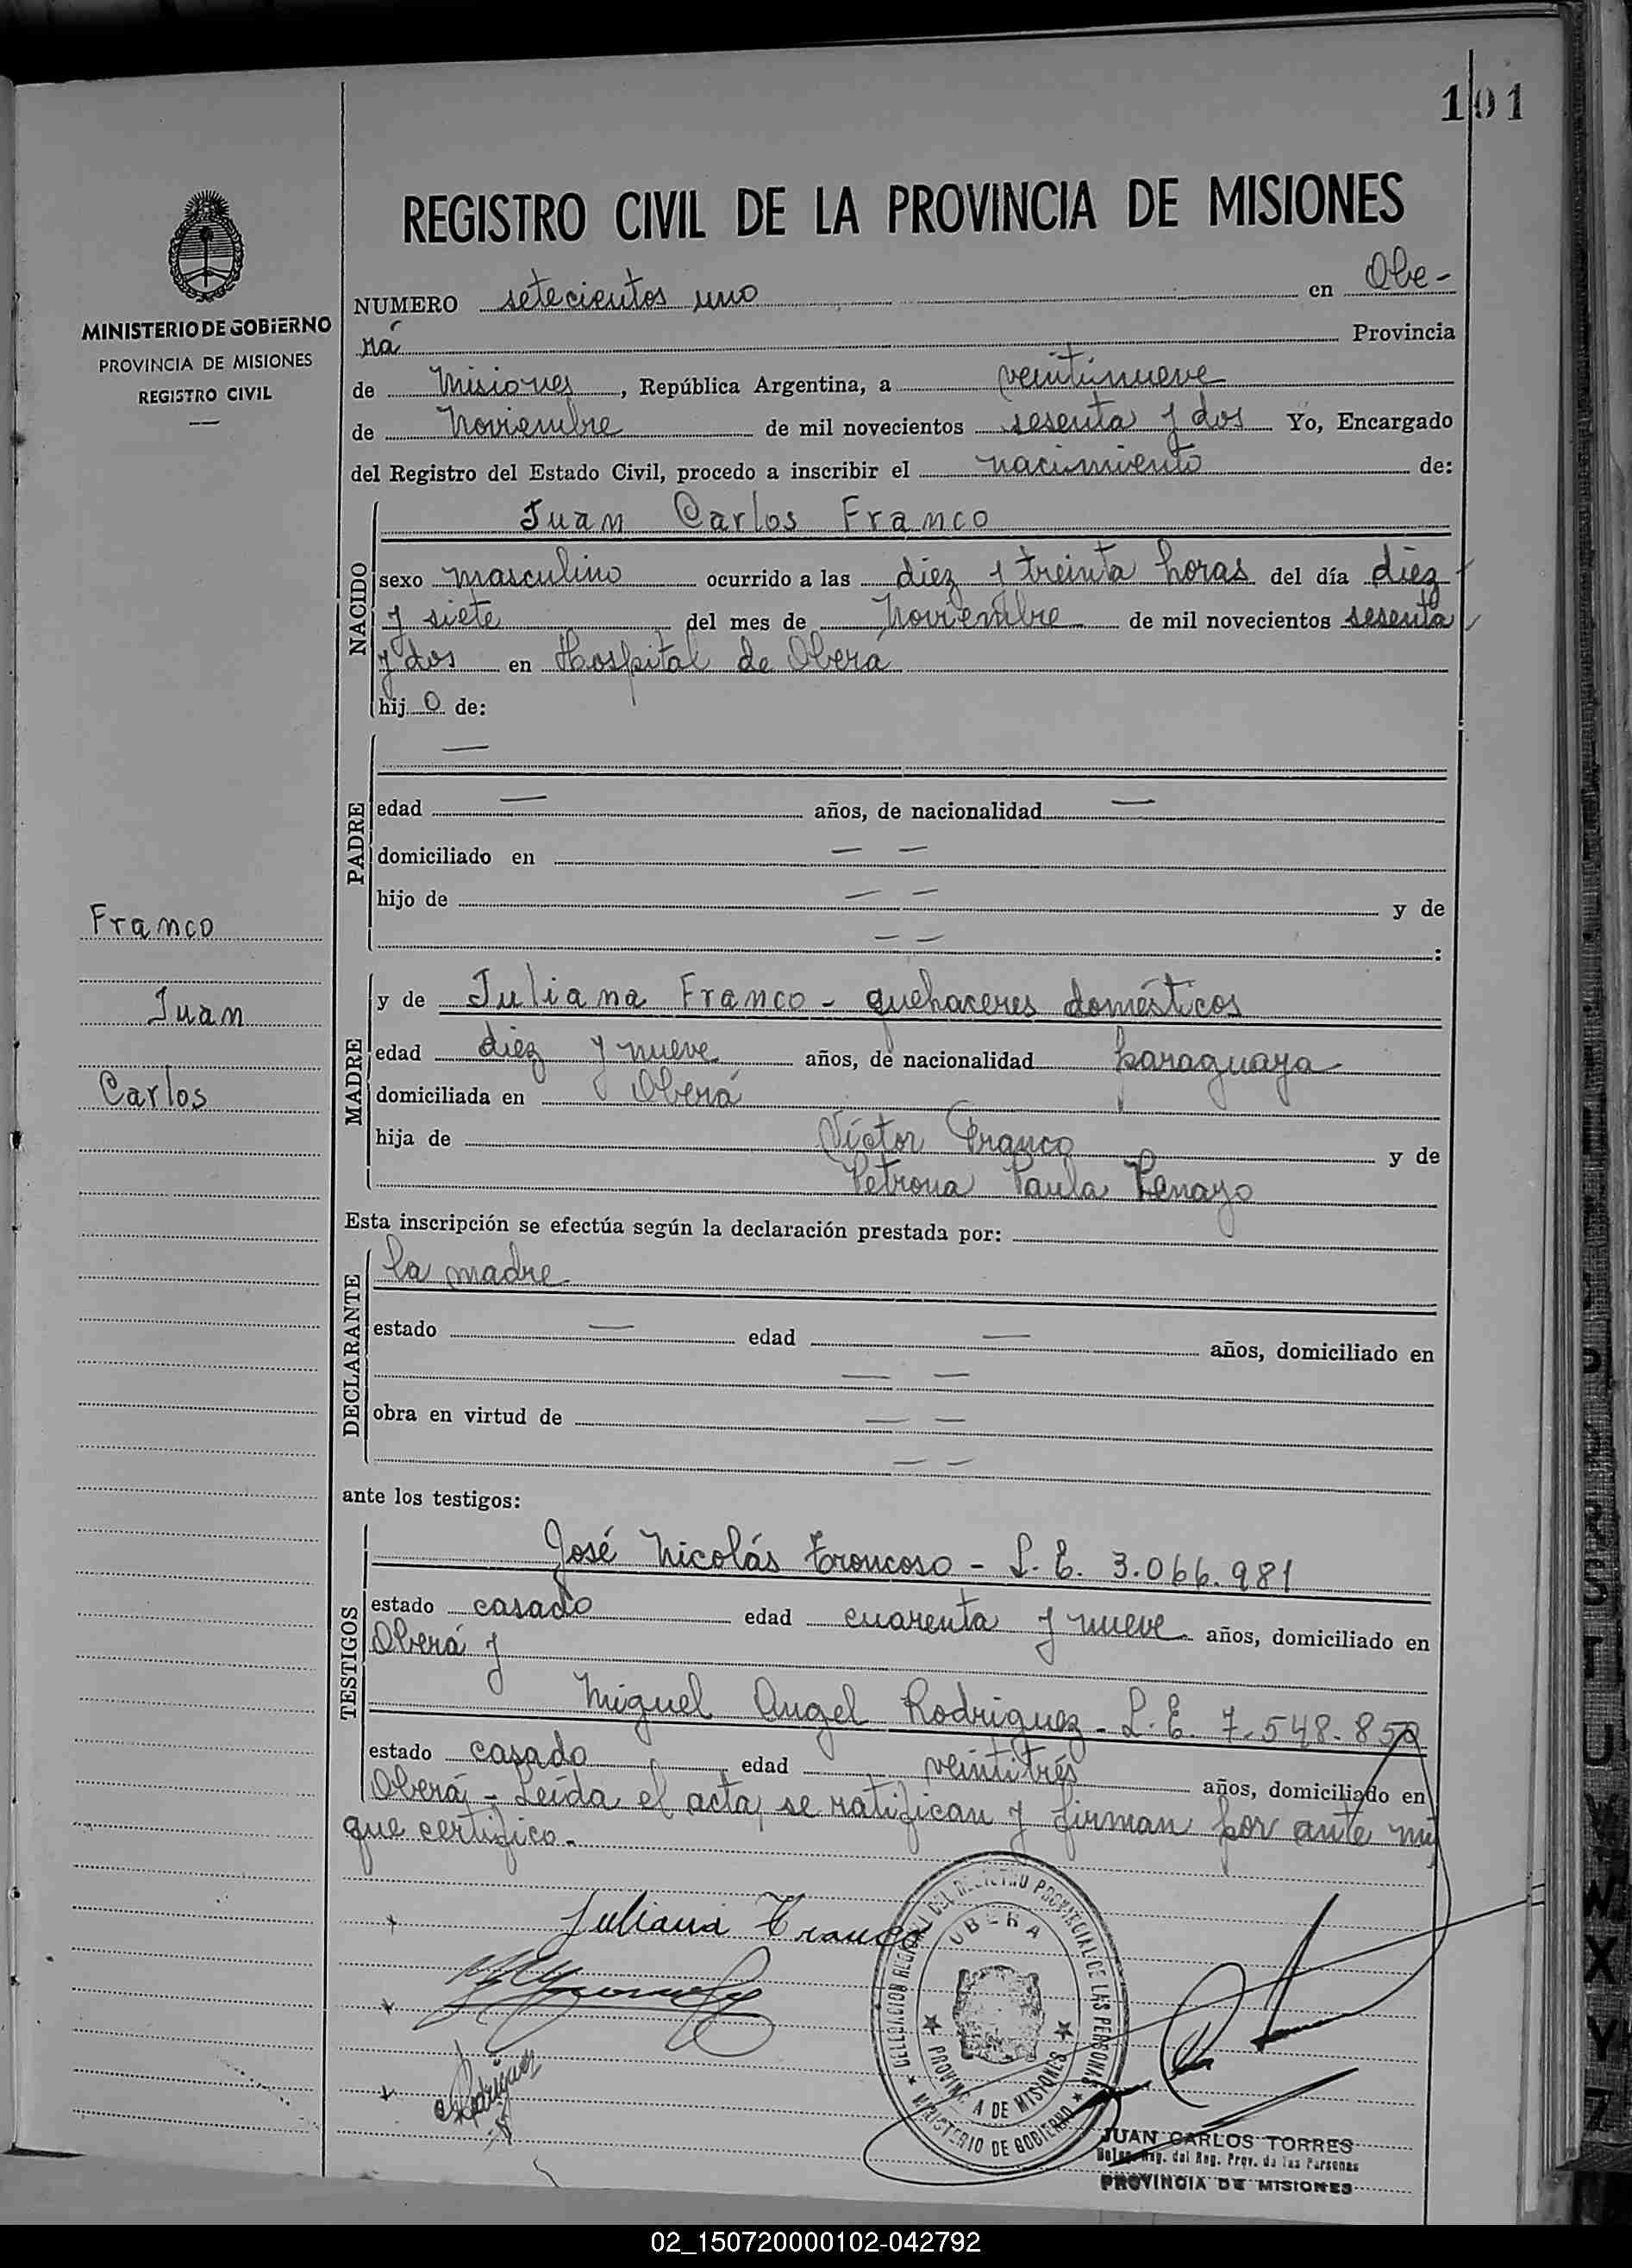 101
REGISTRO CIVIL DE LA PROVINCIA DE MISIONES
MINISTERIO DE GOBIERNO
PROVINCIA DE MISIONES
REGISTRO CIVIL
NUMERO setecientos uno en Obe-
rá Provincia
de Misiones, República Argentina, a veintinueve
de Noviembre de mil novecientos sesenta y dos Yo, Encargado
del Registro del Estado Civil, procedo a inscribir el nacimiento de:
NACIDO
Juan Carlos Franco
sexo masculino ocurrido a las diez y treinta horas del día diez
y siete del mes de Noviembre de mil novecientos sesenta
y dos en Hospital de Obera
hij o de:
PADRE
—
edad — años, de nacionalidad —
domiciliado en — —
hijo de — — y de
— — :
Franco
Juan
Carlos
MADRE
y de Juliana Franco - quehaceres domésticos
edad diez y nueve años, de nacionalidad paraguaya
domiciliada en Oberá
hija de Víctor Franco y de
Petrona Paula
Esta inscripción se efectúa según la declaración prestada por:
DECLARANTE
la madre
estado — edad — años, domiciliado en
— —
obra en virtud de — —
— —
ante los testigos:
TESTIGOS
José Nicolás Troncoso - L. E. 3.066.981
estado casado edad cuarenta y nueve años, domiciliado en
Oberá y
Miguel Angel Rodriguez - L. E. 7.548.852
estado casado edad veintitrés años, domiciliado en
Oberá - Leída el acta, se ratifican y firman por ante mí
que certifico.-
Juliana Franco
Rodriguez
DELEGACION REGIONAL DEL REGISTRO PROVINCIAL DE LAS PERSONAS
OBERA
PROVINCIA DE MISIONES
MINISTERIO DE GOBIERNO
JUAN CARLOS TORRES
Deleg. Reg. del Reg. Prov. de las Personas
PROVINCIA DE MISIONES
U
V
W
X
Y
Z
02_150720000102-042792